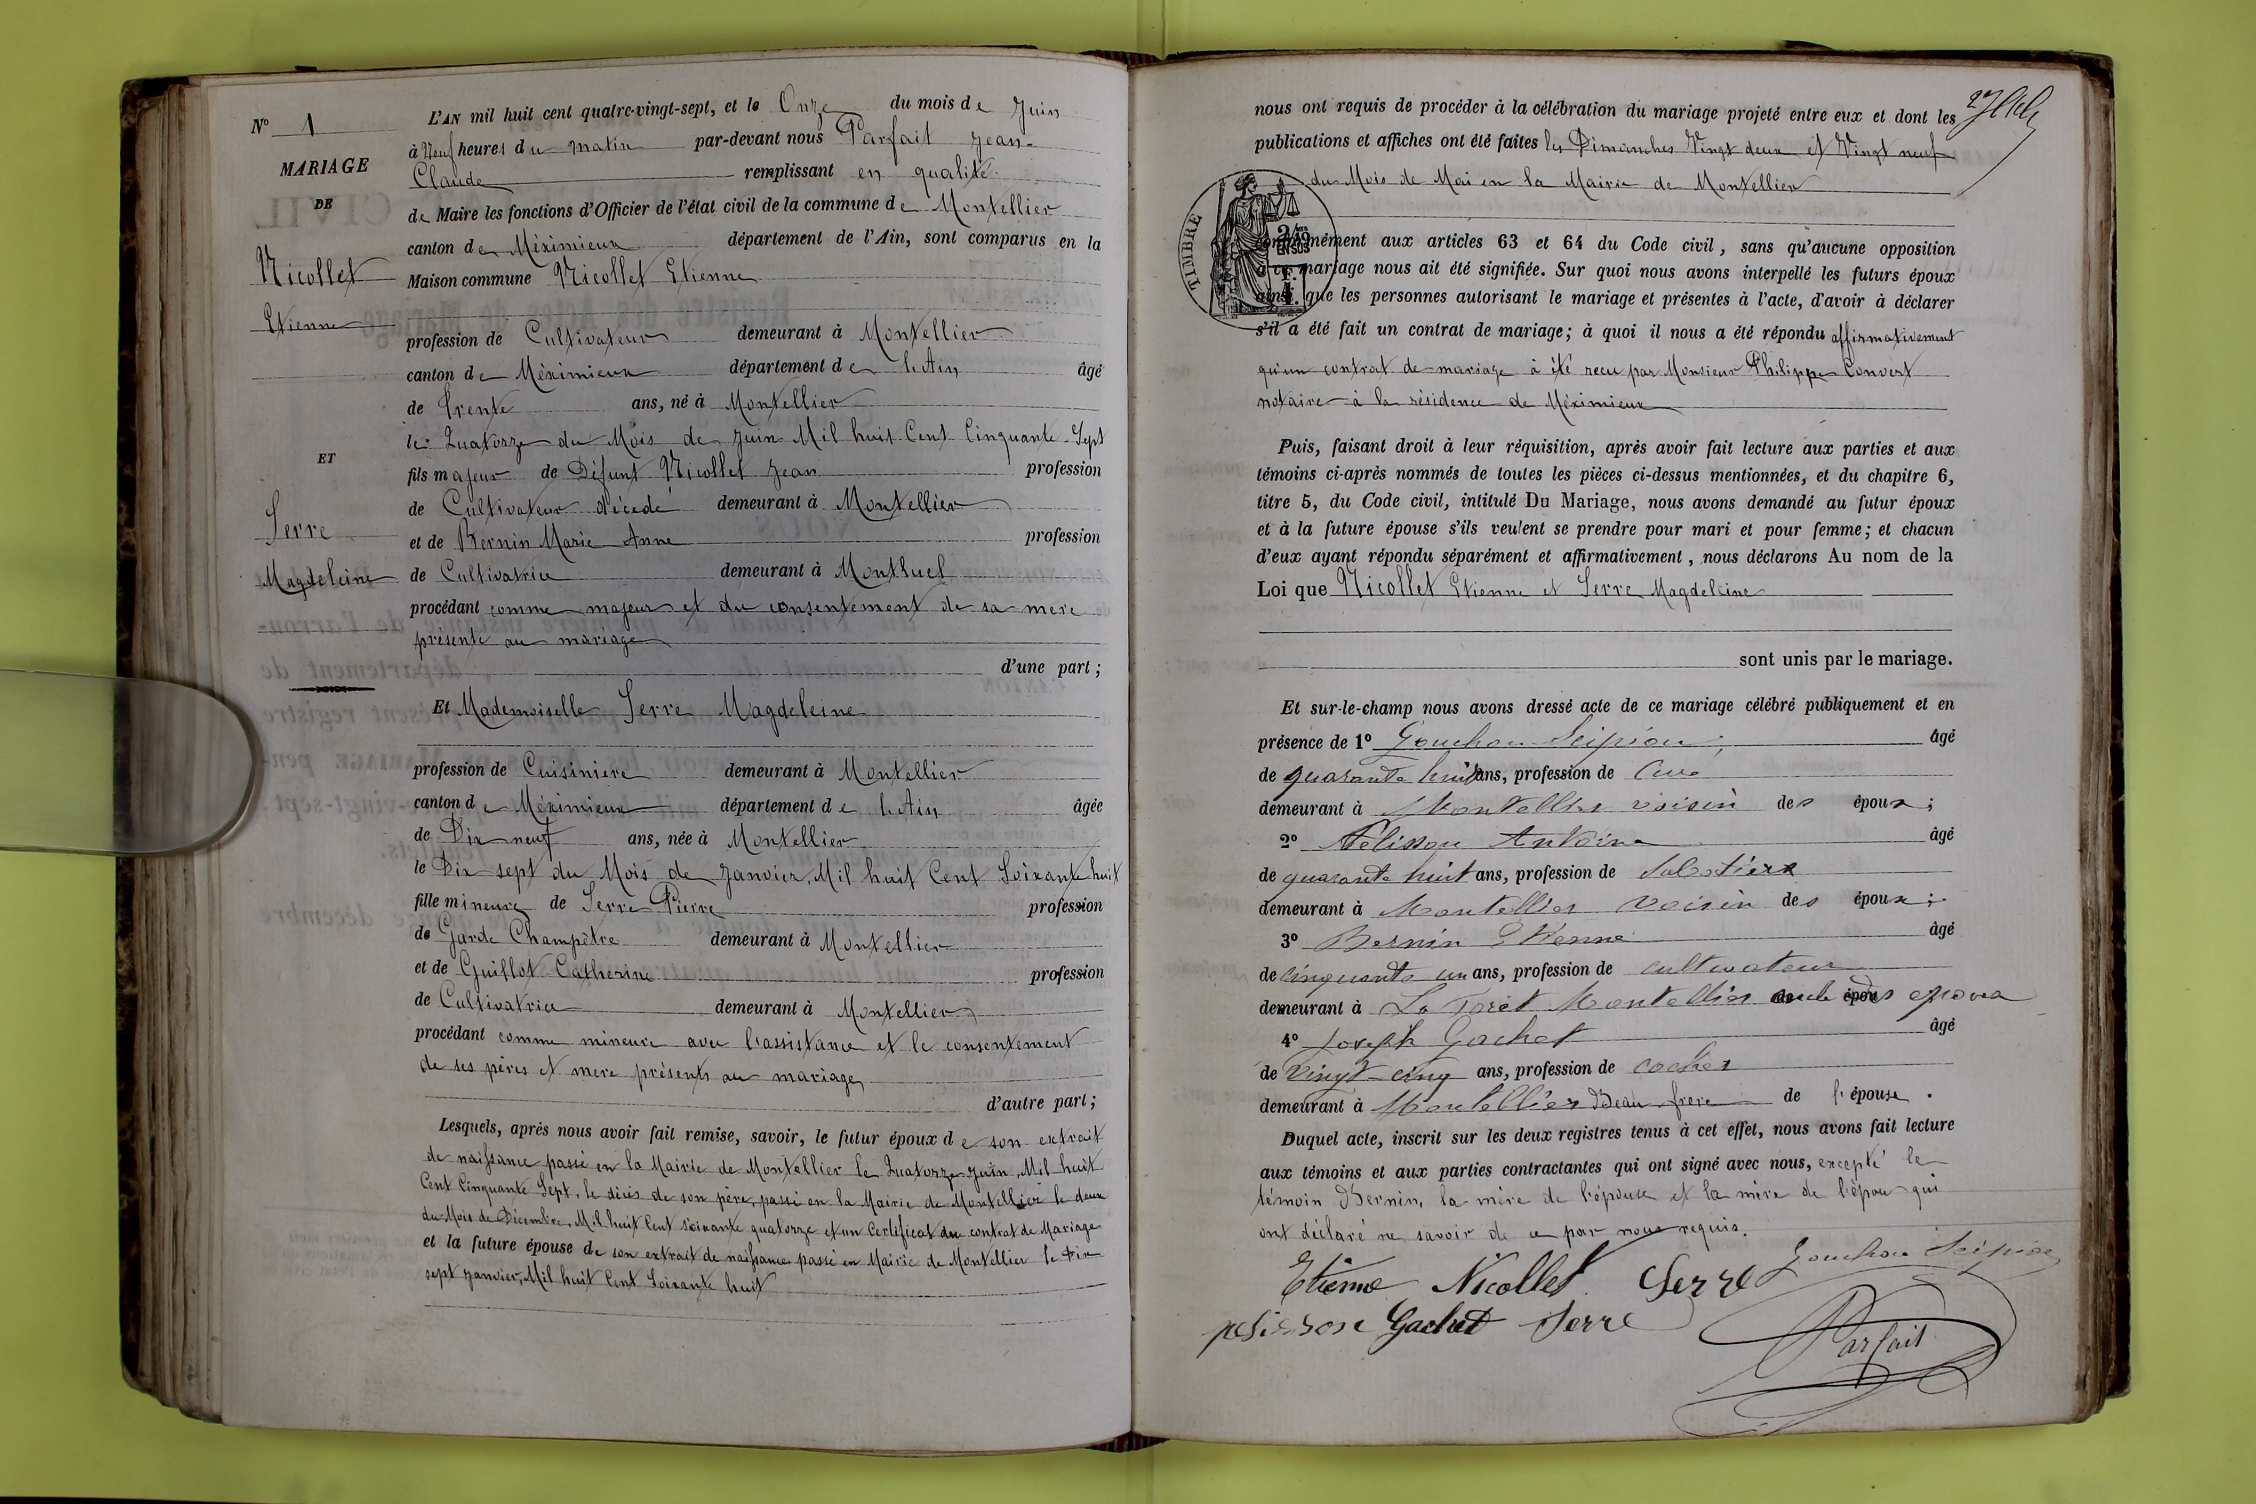 N° 1
MARIAGE
DE
Nicollet
Etienne
ET
Serre
Magdeleine
L'AN mil huit cent quatre-vingt-sept, et le Onze du mois de Juin
à Neuf heures du matin par-devant nous Parfait Jean-
Claude remplissant en qualité
de Maire les fonctions d'Officier de l'état civil de la commune de Montellier
canton de Méximieux département de l'Ain, sont comparus en la
Maison commune Nicollet Etienne
profession de Cultivateur demeurant à Montellier
canton de Méximieux département de l'Ain âgé
de trente ans, né à Montellier
le Quatorze du Mois de Juin Mil huit Cent Cinquante Sept
fils majeur de Défunt Nicollet Jean profession
de Cultivateur décédé demeurant à Montellier
et de Bernin Marie Anne profession
de Cultivatrice demeurant à Montluel
procédant comme majeur et du consentement de sa mere
présente au mariage
d'une part ;
Et Mademoiselle Serre Magdeleine
profession de Cuisiniere demeurant à Montellier
canton de Méximieux département de l'Ain âgée
de Dix neuf ans, née à Montellier
le Dix sept du Mois de Janvier, Mil huit Cent Soixante huit
fille mineure de Serre Pierre profession
de Garde Champêtre demeurant à Montellier
et de Guillot Catherine profession
de Cultivatrice demeurant à Montellier
procédant comme mineure avec l'assistance et le consentement
de ses pères et mere présents au mariage
d'autre part ;
Lesquels, après nous avoir fait remise, savoir, le futur époux de son extrait
de naissance passé en la Mairie de Montellier le Quatorze Juin, Mil huit
Cent Cinquante Sept, le décès de son père, passé en la Mairie de Montellier le deux
du Mois de Décembre, Mil huit Cent soixante quatorze et un Certificat du contrat de Mariage
et la future épouse de son extrait de naissance passé en Mairie de Montellier le Dix
sept Janvier, Mil huit Cent Soixante huit
nous ont requis de procéder à la célébration du mariage projeté entre eux et dont les
publications et affiches ont été faites les Dimanches Vingt deux et Vingt neuf
du Mois de Mai en la Mairie de Montellier
TIMBRE
conformément aux articles 63 et 64 du Code civil, sans qu'aucune opposition
à ce mariage nous ait été signifiée. Sur quoi nous avons interpellé les futurs époux
ainsi que les personnes autorisant le mariage et présentes à l'acte, d'avoir à déclarer
s'il a été fait un contrat de mariage ; à quoi il nous a été répondu affirmativement
qu'un contrat de mariage à été recu par Monsieur Philippe Convert
notaire à la résidence de Méximieux
Puis, faisant droit à leur réquisition, après avoir fait lecture aux parties et aux
témoins ci-après nommés de toutes les pièces ci-dessus mentionnées, et du chapitre 6,
titre 5, du Code civil, intitulé Du Mariage, nous avons demandé au futur époux
et à la future épouse s'ils veulent se prendre pour mari et pour femme ; et chacun
d'eux ayant répondu séparément et affirmativement, nous déclarons Au nom de la
Loi que Nicollet Etienne et Serre Magdeleine
sont unis par le mariage.
Et sur-le-champ nous avons dressé acte de ce mariage célébré publiquement et en
présence de 1° Gouchon Scipion, âgé
de quarante huit ans, profession de Curé
demeurant à Montellier voisin des époux ;
2° Pélisson Antoine âgé
de quarante huit ans, profession de Sabotier
demeurant à Montellier voisin des époux ;
3° Bernin Etienne âgé
de cinquante un ans, profession de cultivateur
demeurant à La Foret Montellier oncle des époux
4° Joseph Gachet âgé
de Vingt-cinq ans, profession de cocher
demeurant à Montellier Beau frere de l'épouse.
Duquel acte, inscrit sur les deux registres tenus à cet effet, nous avons fait lecture
aux témoins et aux parties contractantes qui ont signé avec nous, excepté le
témoin Bernin, la mère de l'épouse et la mère de l'époux qui
ont déclaré ne savoir de ce par nous requis.
Etienne Nicollet Serre Gouchon Scipion
pelisson Gachet Serre Parfait